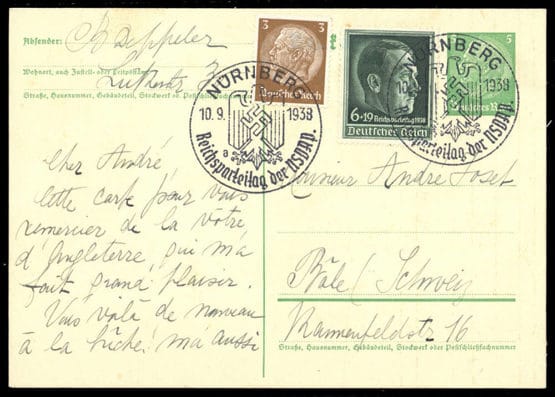 Absender:
Wohnort, auch Zustell- oder Leitpostamt
Straße, Hausnummer, Gebäudeteil, Stockwerk od. Postschließfachnummer
3 3
Deutsches Reich
6+19 Reichsparteitag 1938
Deutsches Reich
5
Deutsches Reich
NÜRNBERG
10.9. 1938
a
Reichsparteitag der NSDAP.
NÜRNBERG
10. 1938
Reichsparteitag der NSDAP.
Cher André,
Cette carte pour vous
remercier de la votre
d'Angleterre, qui m'a
fait grand plaisir.
Vous voilà de nouveau
à la bûche, moi aussi
Monsieur André Josef
Bâle (Schweiz
Kannenfeldstr 16
Straße, Hausnummer, Gebäudeteil, Stockwerk oder Postschließfachnummer